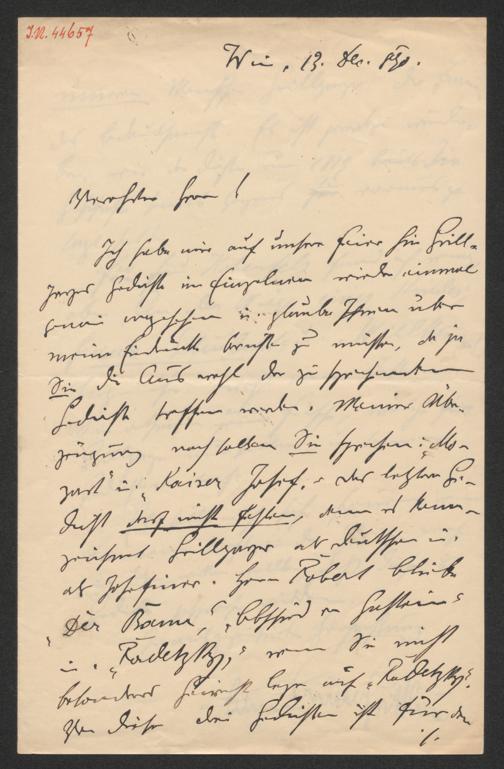 I.N. 44657
Wien, 13. Dec. 890.
Verehrter Herr!
Ich habe mir auf unsere Feier hin Grill-
parzers Gedichte im Einzelnen wieder einmal
genau angesehen u. glaube Ihnen über
meine Eindrücke berichten zu müssen, da ja
Sie die Auswahl der zu sprechenden
Gedichte treffen werden. Meiner Über-
zeugung nach sollten Sie sprechen: „Mo-
zart" u. „Kaiser Josef." das letzten Ge-
dicht darf nicht fehlen, denn es kenn-
zeichnet Grillparzer als Deutschen u.
als Josefiner. Herrn Robert bliebe
„Der Bann", „Abschied von Gastein"
u. „Radetzky," wenn Sie nicht
besonderes Gewicht legen auf „Radetzky".
Von diesen drei Gedichten ist für den
./.